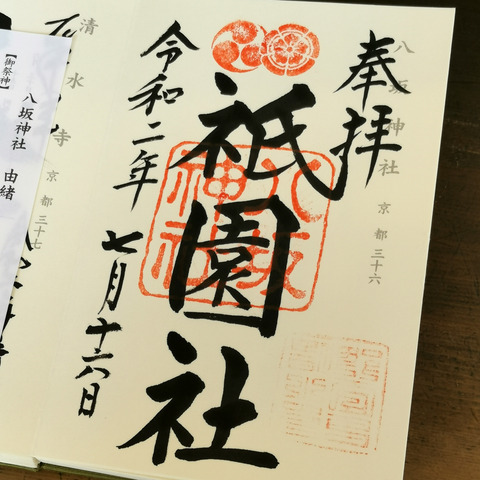 奉拝
八坂神社 京都三十六
祇園社
八坂神社
令和二年 七月十六日
清水寺 京都三十七
【御祭神】
八坂神社 由緒